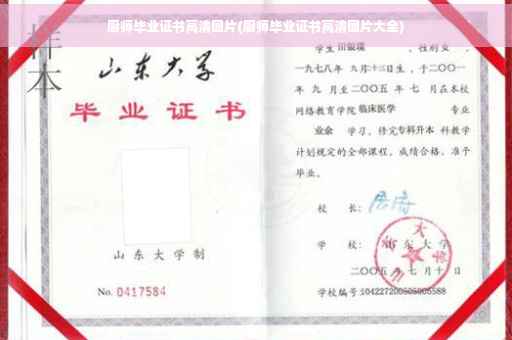 厨师毕业证书高清图片(厨师毕业证书高清图片大全)
样本
山东大学
毕业证书
山东大学制
No. 0417584
学生 田银瑞 ，性别 女 ，
一九七八年 九月十三日生，于二〇〇一
年 九 月至二〇〇五 年 七 月在本校
网络教育学院 临床医学 专业
业余 学习，修完专科升本 科教学
计划规定的全部课程，成绩合格，准予
毕业。
校 长：
学 校：山东大学
二〇〇五 年 七 月 十 日
学校编号:104227200505005588